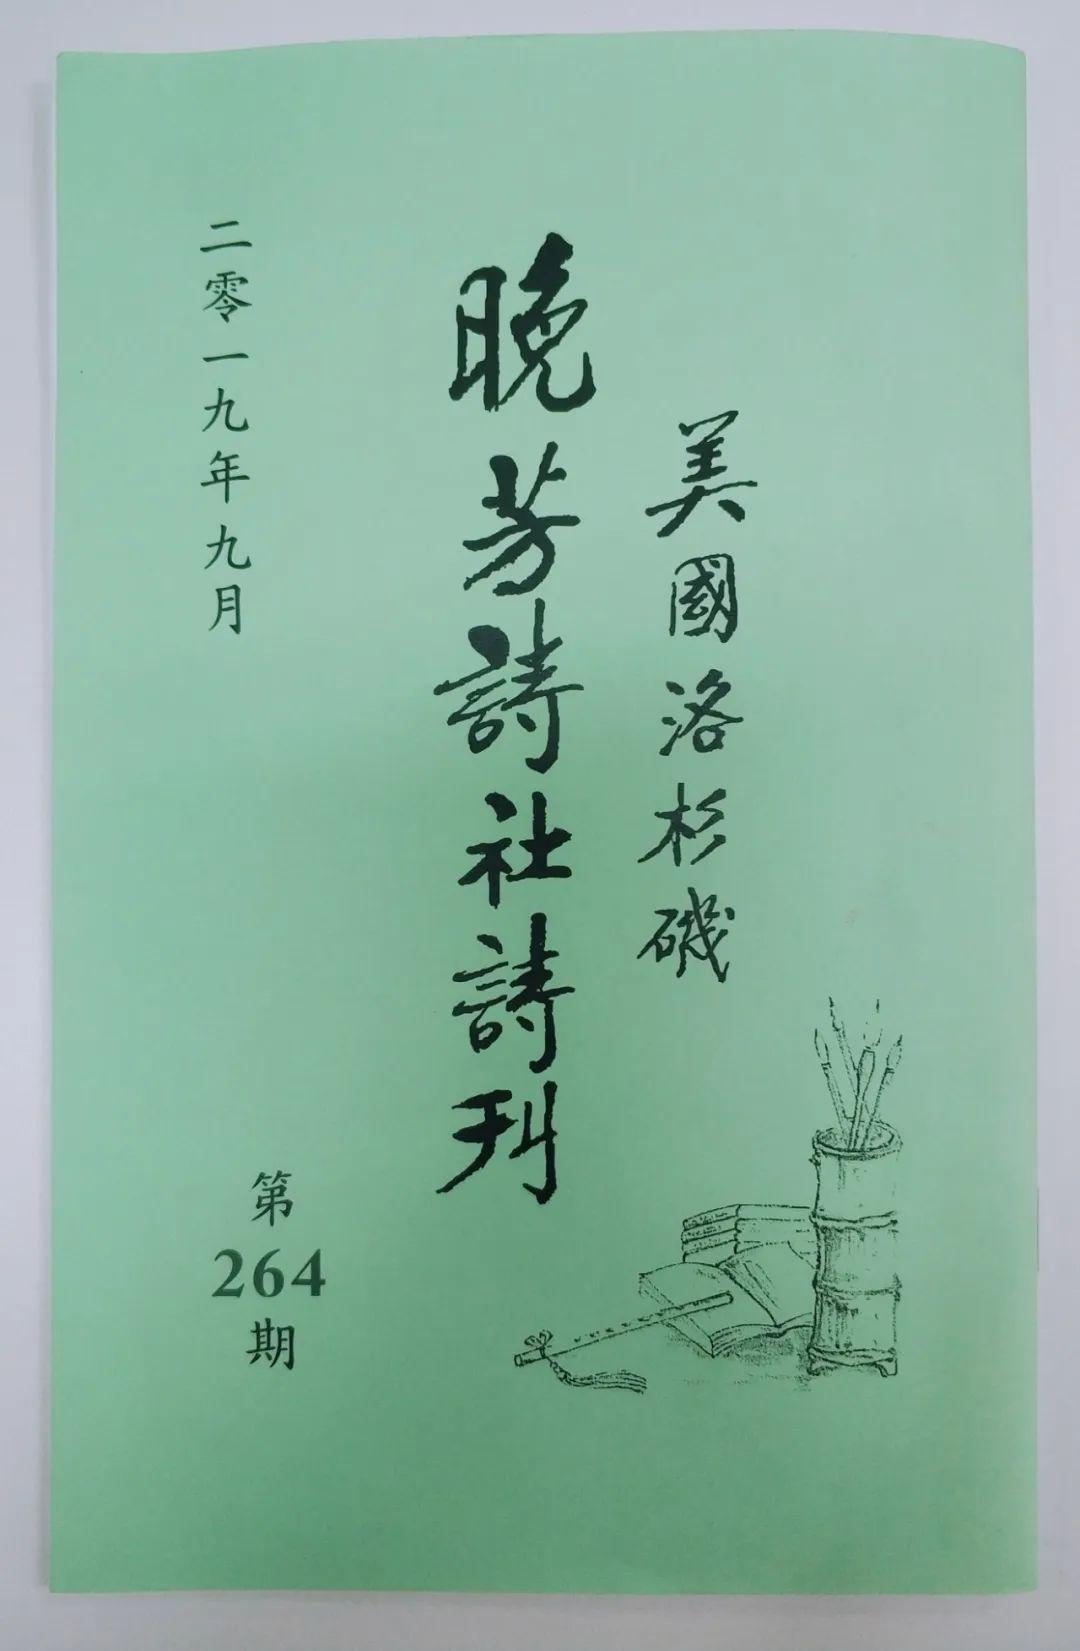 美國洛杉磯
晚芳詩社詩刋
二零一九年九月
第
264
期